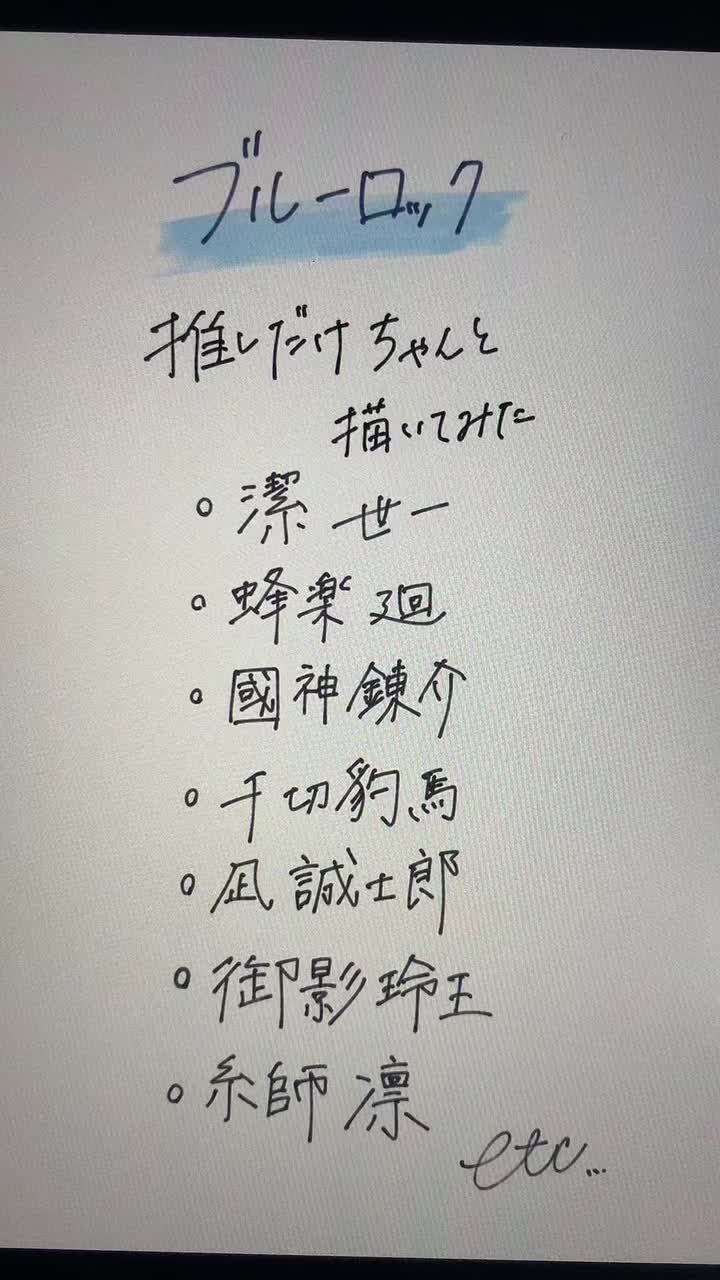 ブルーロック
推しだけちゃんと
描いてみた
○ 潔 世一
○ 蜂楽 廻
○ 國神錬介
○ 千切豹馬
○ 凪 誠士郎
○ 御影玲王
○ 糸師 凛
etc...